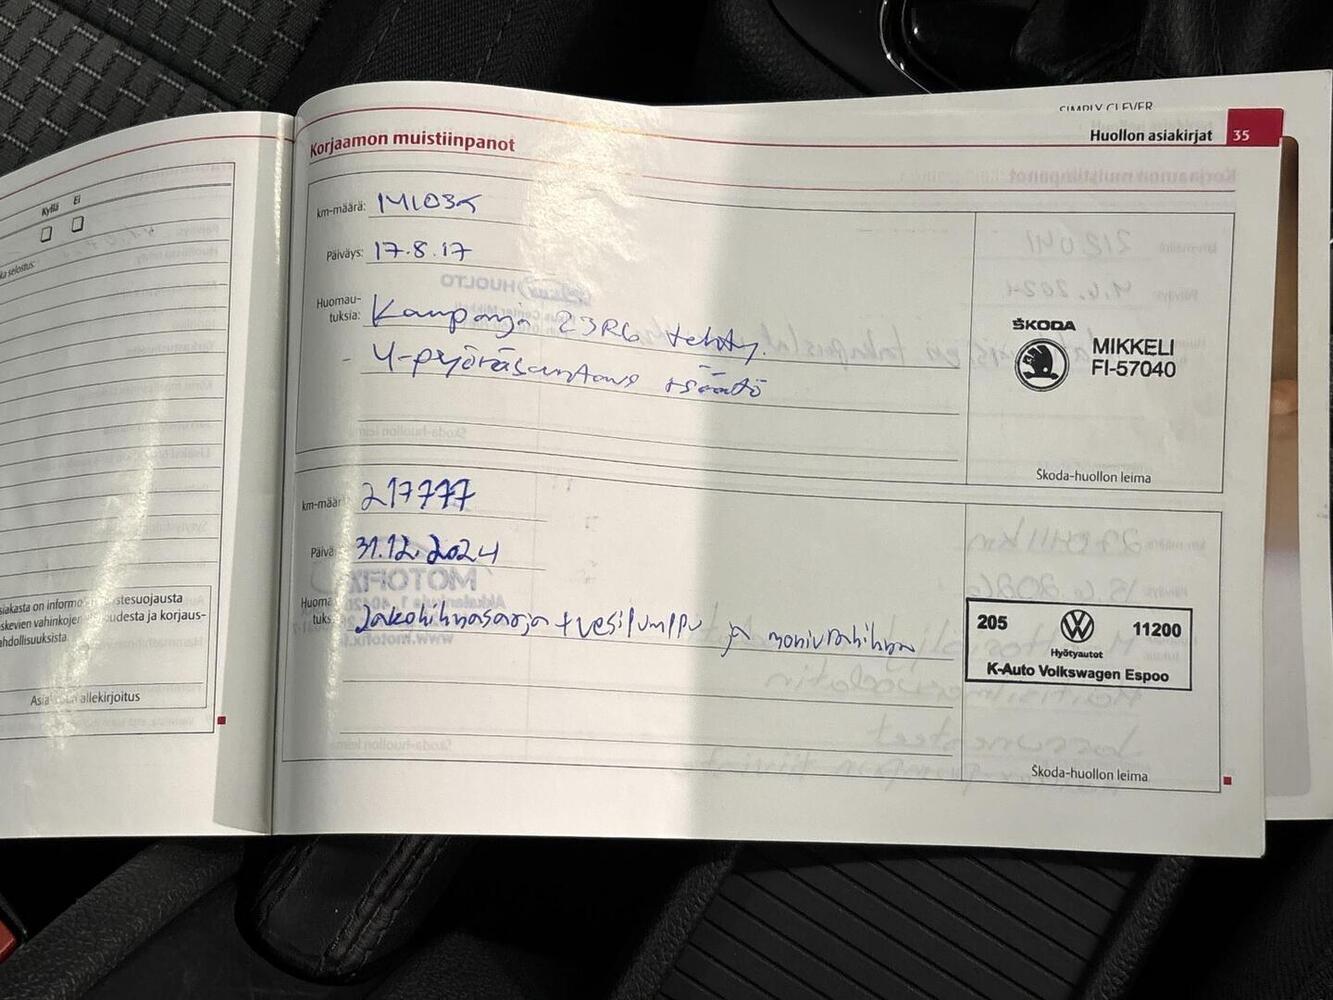 Kyllä Ei
SIMPLY CLEVER
Huollon asiakirjat 35
Korjaamon muistiinpanot
km-määrä: 141035
Päiväys: 17.8.17
Huomau-
tuksia: Kampanja 23R6 tehty.
- 4-pyöräsuuntaus + säätö
ŠKODA
MIKKELI
FI-57040
Škoda-huollon leima
km-määr 217777
Päivä 31.12.2024
Huoma
tuks Jakohihnasarja + vesipumppu ja moniurahihna
205 11200
Hyötyautot
K-Auto Volkswagen Espoo
Škoda-huollon leima
siakasta on informo stesuojausta
skevien vahinkojen udesta ja korjaus-
ahdollisuuksista.
Asia allekirjoitus